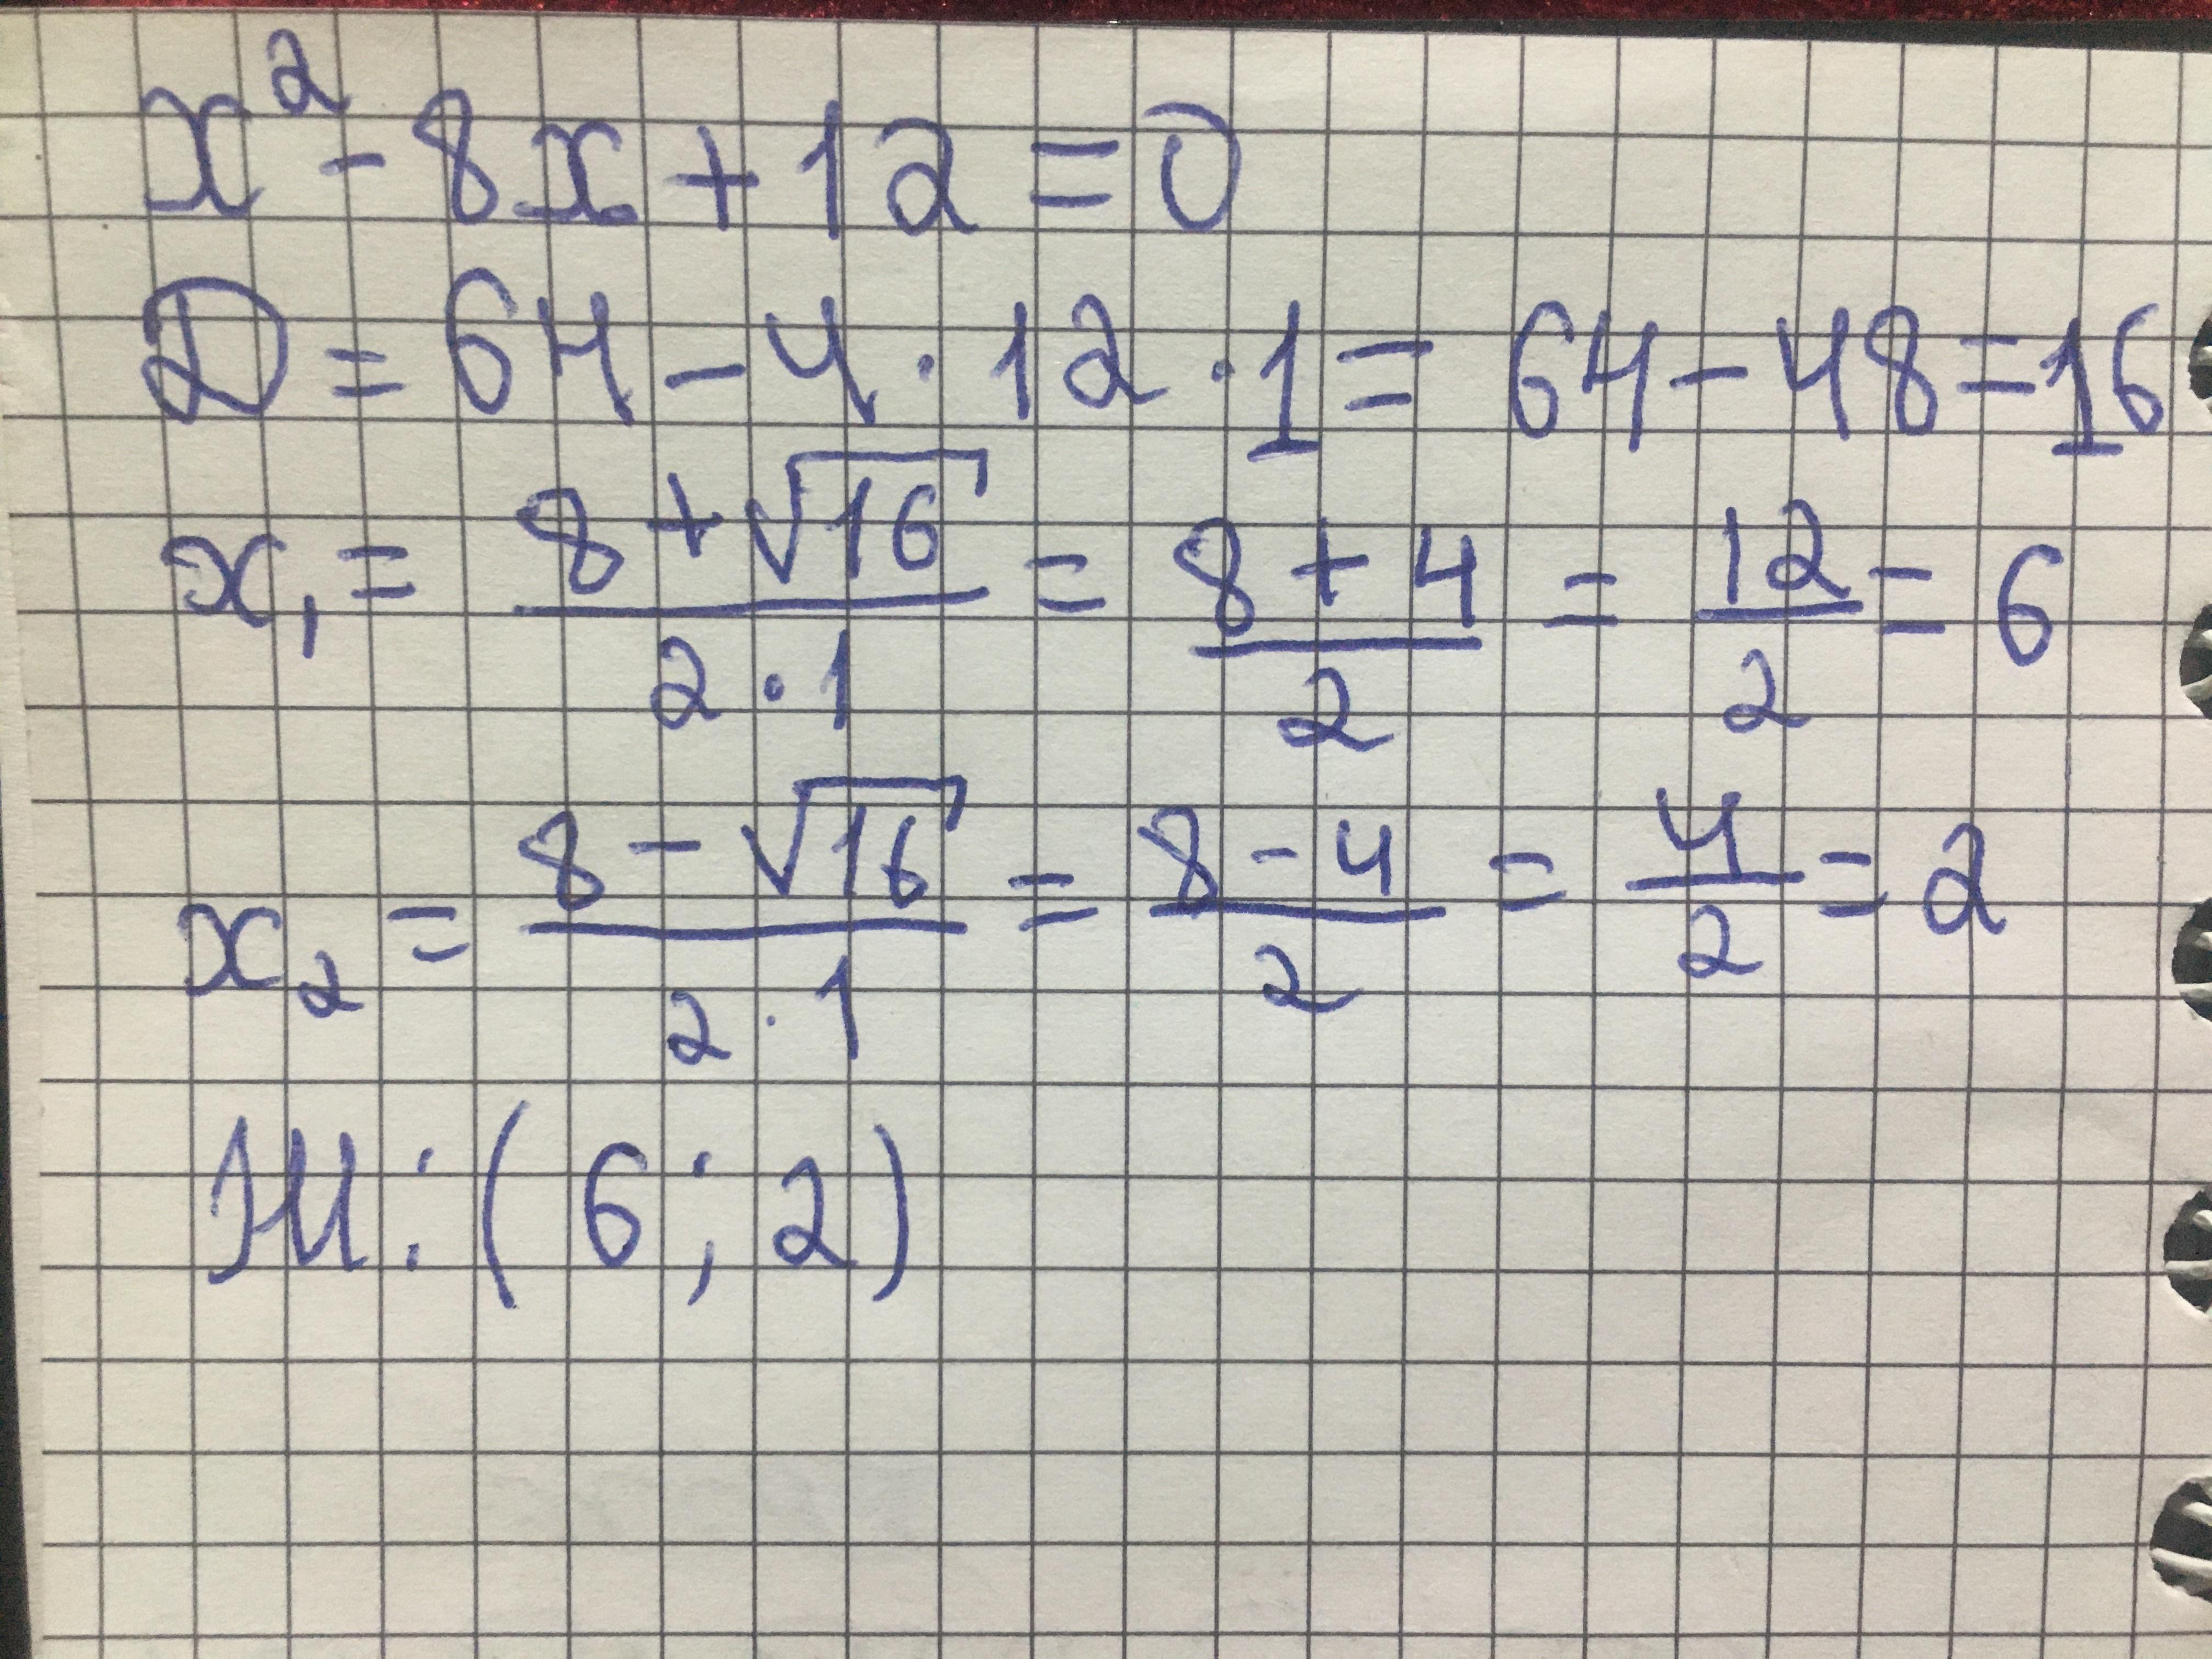 x² - 8x + 12 = 0
D = 64 - 4 · 12 · 1 = 64 - 48 = 16
x₁ = (8 + √16)/(2 · 1) = (8 + 4)/2 = 12/2 = 6
x₂ = (8 - √16)/(2 · 1) = (8 - 4)/2 = 4/2 = 2
Ж: (6; 2)